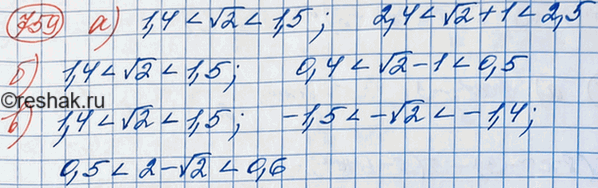 759 а) 1,4 < √2 < 1,5; 2,4 < √2 + 1 < 2,5
б) 1,4 < √2 < 1,5; 0,4 < √2 - 1 < 0,5
©reshak.ru
в) 1,4 < √2 < 1,5; -1,5 < -√2 < -1,4;
0,5 < 2 - √2 < 0,6